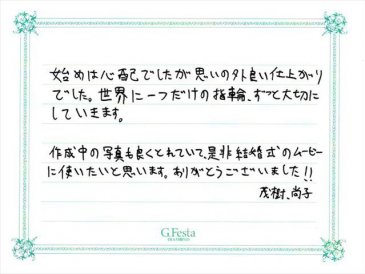 始めは心配でしたが思いの外良い仕上がり
でした。世界に一つだけの指輪、ずっと大切に
していきます。
作成中の写真も良くとれていて、是非結婚式のムービー
に使いたいと思います。ありがとうございました!!
茂樹、尚子
G.Festa